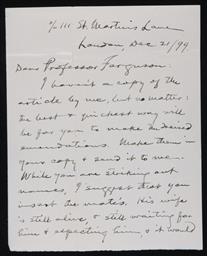 c/o 111 St. Martin's Lane
London, Dec 21/99.
Dear Professor Ferguson:
I haven't a copy of the
article by me, but no matter:
the best & quickest way will
be for you to make the desired
emendations. Make them in
your copy & send it to me.
While you are striking out
names, I suggest that you
insert the mate's. His wife
is still alive, & still waiting for
him & expecting him, & it would